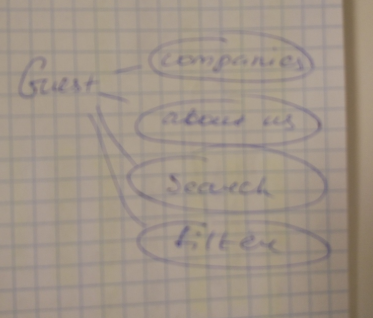 Guest
companies
about us
Search
filter